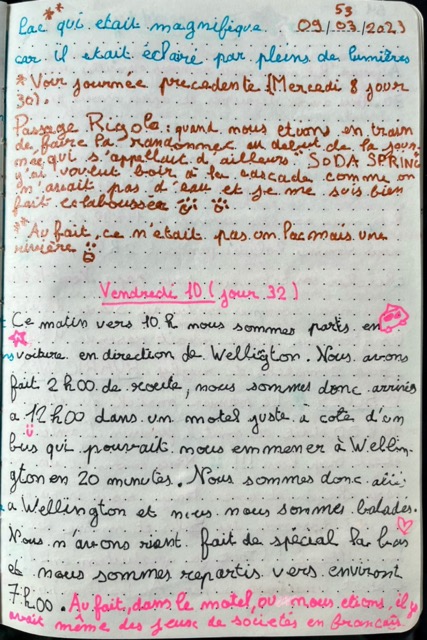 53
lac** qui etait magnifique... 09/03/2023
car il etait éclairé par pleins de lumières
* Voir journée precedente (Mercredi 8 jour
30).
Passage Rigolo: quand nous etions en train
de faire la randonnée au debut de la jour-
née qui s'appellait d'ailleurs "SODA SPRING"
j'ai voulut boir a la cascade comme on
n'avait pas d'eau et je me suis bien
fait eclabousser
** Au fait, ce n'etait pas un lac mais une
rivière
Vendredi 10 (jour 32)
Ce matin vers 10 h nous sommes partis en
voiture en direction de Wellington. Nous avons
fait 2h00 de route, nous sommes donc arrivés
a 12h00 dans un motel juste à coté d'un
bus qui pouvait nous emmener à Wellin-
gton en 20 minutes. Nous sommes donc allé
a Wellington et nous nous sommes baladés.
Nous n'avons rient fait de spécial la bas
et nous sommes repartis vers environt
7h00. Au fait, dans le motel, ou nous etions, il y
avait même des jeux de societés en francais